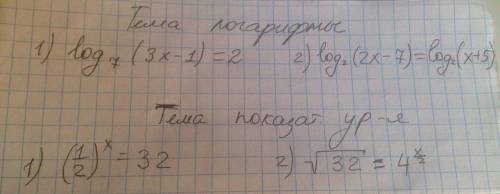 Тема логарифмы
1) log₇ (3x-1) = 2 2) log₂(2x-7)=log₂(x+5)
Тема показат. ур-я
1) (1/2)^x = 32 2) √32 = 4^(x/2)